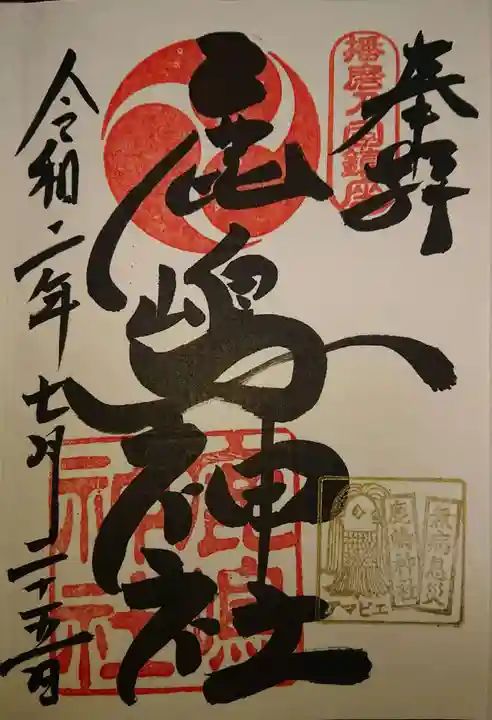 奉拝
播磨乃国鎮座
鹿嶋神社
鹿嶋
神社
無病息災
鹿嶋神社
アマビエ
令和二年七月二十五日